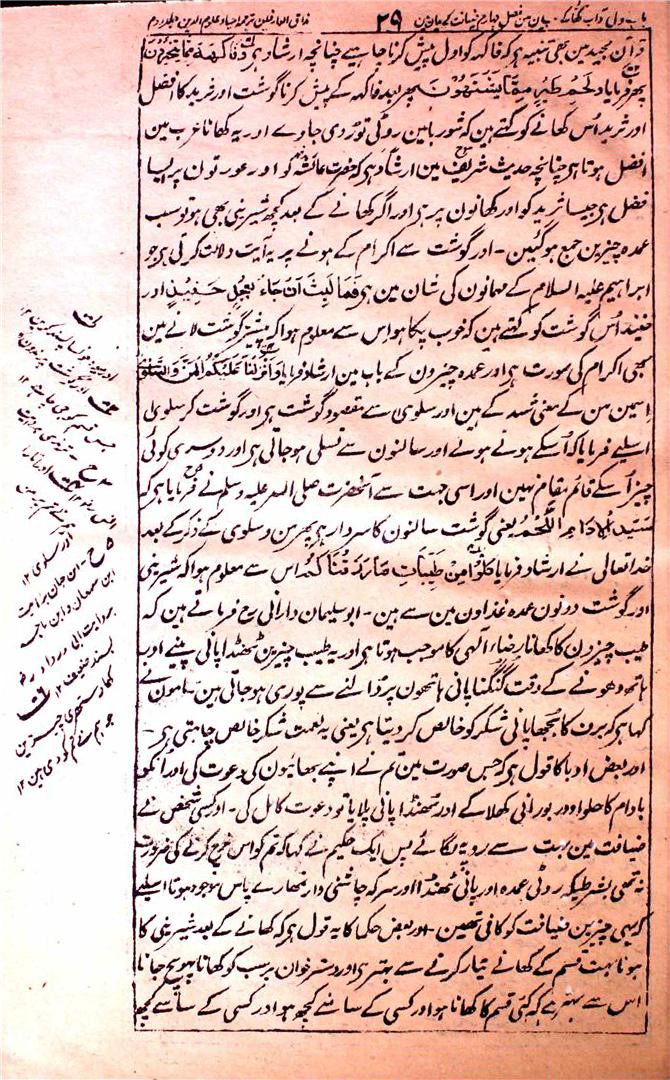 باب دل آداب کھانے کے بیان میں فصل چہارم ضیافت کے بیان میں
۲۹
مذاق العارفین ترجمہ احیاء علوم الدین جلد دوم
قرآن مجید مین بھی تنبیہ ہی کہ فاکہہ کو اول پیش کرنا چاہیے چنانچہ ارشاد ہی وَفَاكِهَةٍ مِّمَّا يَتَخَيَّرُونَ
پھر فرمایا وَلَحْمِ طَيْرٍ مِمَّا يَشْتَهُونَ پھر بعد فاکہہ کے پیش کرنا گوشت اور ثرید کا افضل
اور ثرید اُس کھانے کو کہتے ہین کہ شوربا مین روٹی توڑ دی جاوے اور یہ کھانا عرب مین
افضل ہوتا ہی چنانچہ حدیث شریف مین ارشاد ہی کہ حضرت عائشہ کو اور عورتون پر ایسا
فضل ہی جیسا ثرید کو اور کھانون پر ہی اور اگر کھانے کے بعد کچھ شیرینی بھی ہو تو سب
عمدہ چیزین جمع ہو گئین - اور گوشت سے اکرام کے ہونے پر یہ آیت دلالت کرتی ہی جو
ابراہیم علیہ السلام کے مہمانون کی شان مین ہی فَمَا لَبِثَ أَنْ جَاءَ بِعِجْلٍ حَنِيْذٍ اور
حنیذ اُس گوشت کو کہتے ہین کہ خوب پکا ہو اس سے معلوم ہوا کہ پیشتر گوشت لانے مین
بھی اکرام کی صورت ہی اور عمدہ چیزون کے باب مین ارشاد فرمایا وَأَنْزَلْنَا عَلَيْكُمُ الْمَنَّ وَالسَّلْوٰى
اسمین من کے معنی شہد کے ہین اور سلوی سے مقصود گوشت ہی اور گوشت کو سلوی
اسلیے فرمایا کہ اُسکے ہوتے ہوئے اور سالنون سے تسلی ہو جاتی ہی اور دوسری کوئی
چیز اُسکے قائم مقام نہین اور اسی جہت سے آنحضرت صلی اللہ علیہ وسلم نے فرمایا ہی کہ
سَيِّدُ الْإِدَامِ اللَّحْمُ یعنی گوشت سالنون کا سردار ہی پھر من و سلوی کے ذکر کے بعد
خدا تعالی نے ارشاد فرمایا كُلُوْا مِنْ طَيِّبَاتِ مَا رَزَقْنَاكُمْ اس سے معلوم ہوا کہ شیرینی
اور گوشت دونون عمدہ غذاون مین سے ہین - ابو سلیمان دارانی رح فرماتے ہین کہ
طیب چیزون کا کھانا رضاء الٰہی کا موجب ہوتا ہی اور یہ طیب چیزین ٹھنڈا پانی پینے اور
ہاتھ دھونے کے وقت گنگنا پانی ہاتھون پر ڈالنے سے پوری ہو جاتی ہین - مامون نے
کہا ہی کہ برف کا بجھا پانی شکر کو خالص کر دیتا ہی یعنی یہ نعمت شکر خالص چاہتی ہی -
اور بعض ادبا کا قول ہی کہ جس صورت مین تم نے اپنے بھائیون کی دعوت کی اور انکو
بادام کا حلوا اور بورانی کھلا کے اور ٹھنڈا پانی پلایا تو دعوت کامل کی - اور کسی شخص نے
ضیافت مین بہت سے روپیہ لگائے پس ایک حکیم نے کہا کہ تم کو اس خرچ کرنے کی ضرورت
نہ تھی بشرطیکہ روٹی عمدہ اور پانی ٹھنڈا اور سرکہ چاشنی دار تمہارے پاس موجود ہوتا اسلیے
کہ یہی چیزین ضیافت کو کافی تھین - اور بعض حکما کا یہ قول ہی کہ کھانے کے بعد شیرینی کا
ہونا بہت قسم کے کھانے تیار کرنے سے بہتر ہی اور دسترخوان پر سب کو کھانا پہونچ جانا
اس سے بہتر ہے کہ کئی قسم کا کھانا ہو اور کسی کے سامنے کچھ ہو اور کسی کے سامنے کچھ
اور سلوی ۱۲
ابن ماجہ
بروایت ابی دردا رض
بسند ضعیف ۱۲
کھاؤ ستھری چیزین
جو ہم نے تم کو دی ہین ۱۲